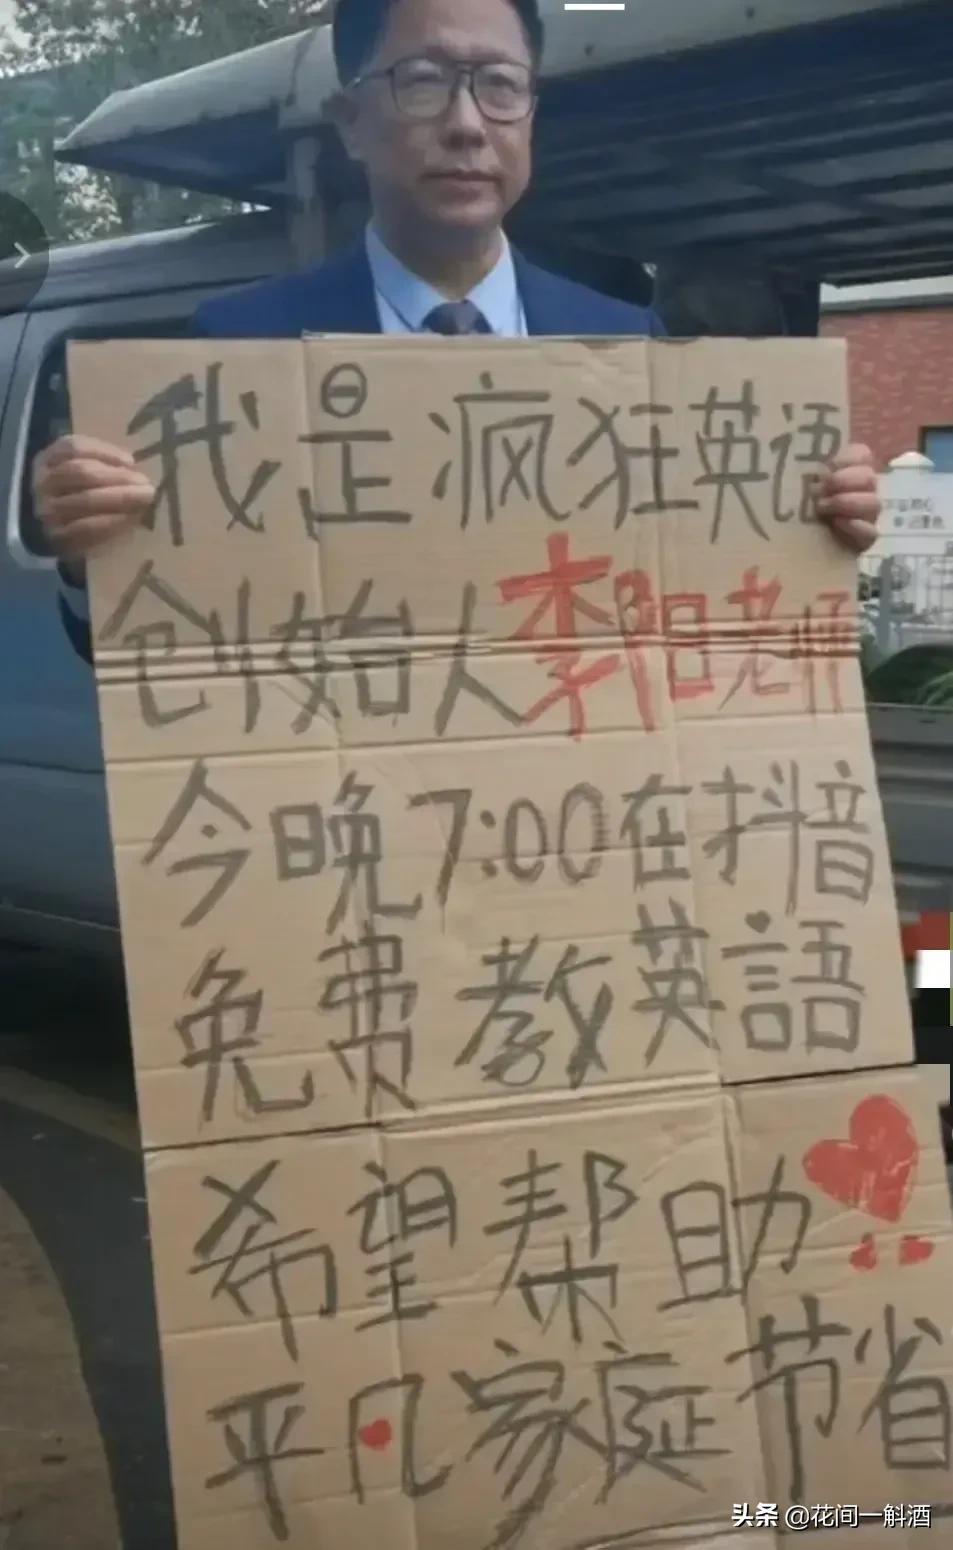 我是疯狂英语
创始人李阳老师
今晚7:00在抖音
免费教英語
希望帮助
平凡家庭节省
头条 @花间一斛酒